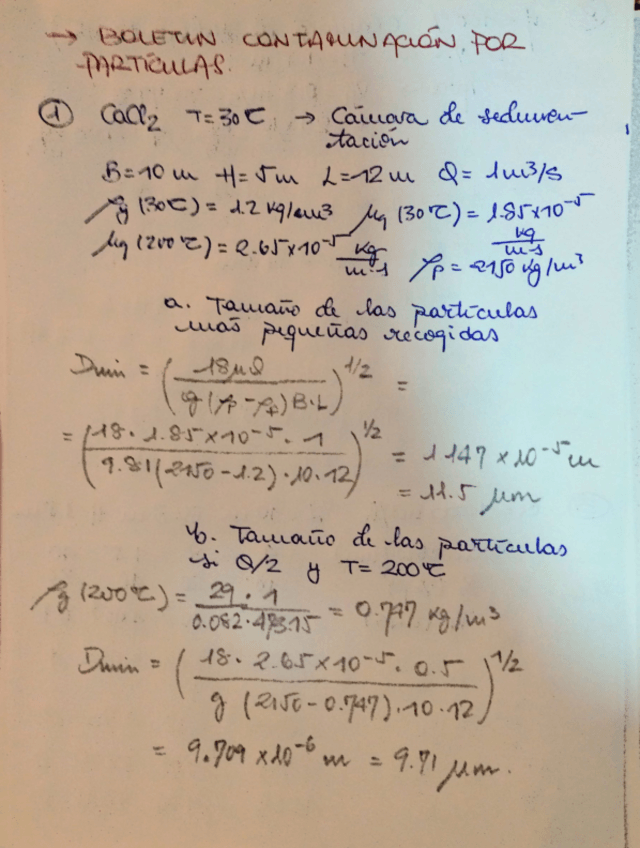 → BOLETIN CONTAMINACIÓN POR
PARTÍCULAS.
① CaCl2 T=30℃ → Cámara de sedimen-
tación
B=10 m H=5m L=12 m Q= 1m3/s
ρg (30℃) = 1.2 kg/m3 μg (30℃) = 1.85x10-5 kg/m·s
μg (200℃) = 2.65x10-5 kg/m·s ρp = 2150 kg/m3
a. Tamaño de las partículas
más pequeñas recogidas
Dmin = (18μQ / g(ρp-ρg)B·L)1/2 =
= (18·1.85x10-5·1 / 9.81(2150-1.2)·10·12)1/2 = 1.147 x10-5 m
= 11.5 μm
b. Tamaño de las partículas
si Q/2 y T= 200℃
ρg (200℃) = 29·1 / 0.082·473.15 = 0.747 kg/m3
Dmin = (18·2.65x10-5·0.5 / g (2150-0.747)·10·12)1/2
= 9.709 x10-6 m = 9.71 μm.